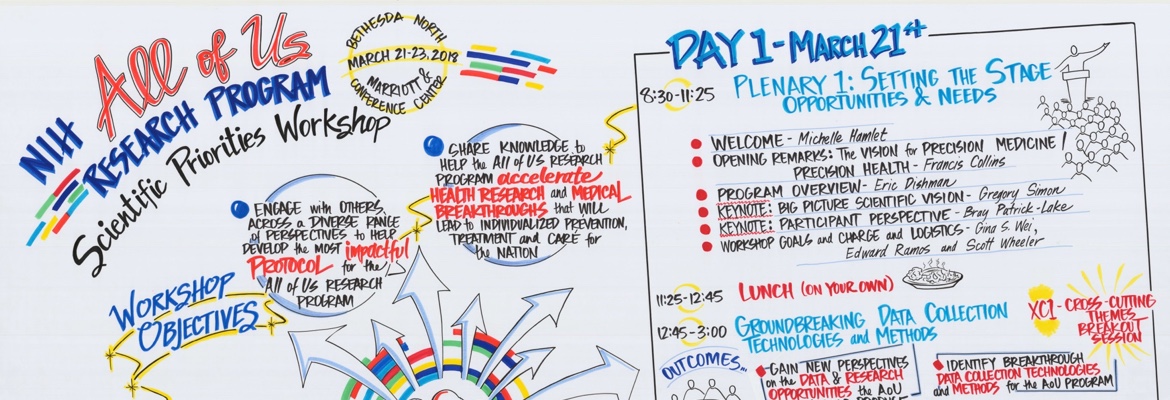 NIH All of Us
RESEARCH PROGRAM
Scientific Priorities Workshop
BETHESDA NORTH
MARCH 21-23, 2018
MARRIOTT &
CONFERENCE CENTER
WORKSHOP
OBJECTIVES
ENGAGE with OTHERS,
ACROSS a DIVERSE RANGE
of PERSPECTIVES to HELP
DEVELOP the MOST impactful
PROTOCOL for the
All of Us RESEARCH
PROGRAM
SHARE KNOWLEDGE to
HELP the All of US RESEARCH
PROGRAM accelerate
HEALTH RESEARCH and MEDICAL
BREAKTHROUGHS that WILL
LEAD to INDIVIDUALIZED PREVENTION,
TREATMENT and CARE for
the NATION
DAY 1 - MARCH 21st
8:30-11:25
PLENARY 1: SETTING THE STAGE
OPPORTUNITIES & NEEDS
WELCOME - Michelle Hamlet
OPENING REMARKS: The VISION for PRECISION MEDICINE/
PRECISION HEALTH - Francis Collins
PROGRAM OVERVIEW - Eric Dishman
KEYNOTE: BIG PICTURE SCIENTIFIC VISION - Gregory Simon
KEYNOTE: PARTICIPANT PERSPECTIVE - Bray Patrick-Lake
WORKSHOP GOALS and CHARGE and LOGISTICS - Gina S. Wei,
Edward Ramos and Scott Wheeler
11:25-12:45
LUNCH (ON YOUR OWN)
12:45-3:00
GROUNDBREAKING DATA COLLECTION
TECHNOLOGIES and METHODS
XC1 - CROSS-CUTTING
THEMES
BREAKOUT
SESSION
OUTCOMES...
GAIN NEW PERSPECTIVES
on the DATA & RESEARCH
OPPORTUNITIES the AoU
IDENTIFY BREAKTHROUGH
DATA COLLECTION TECHNOLOGIES
and METHODS for the AoU PROGRAM